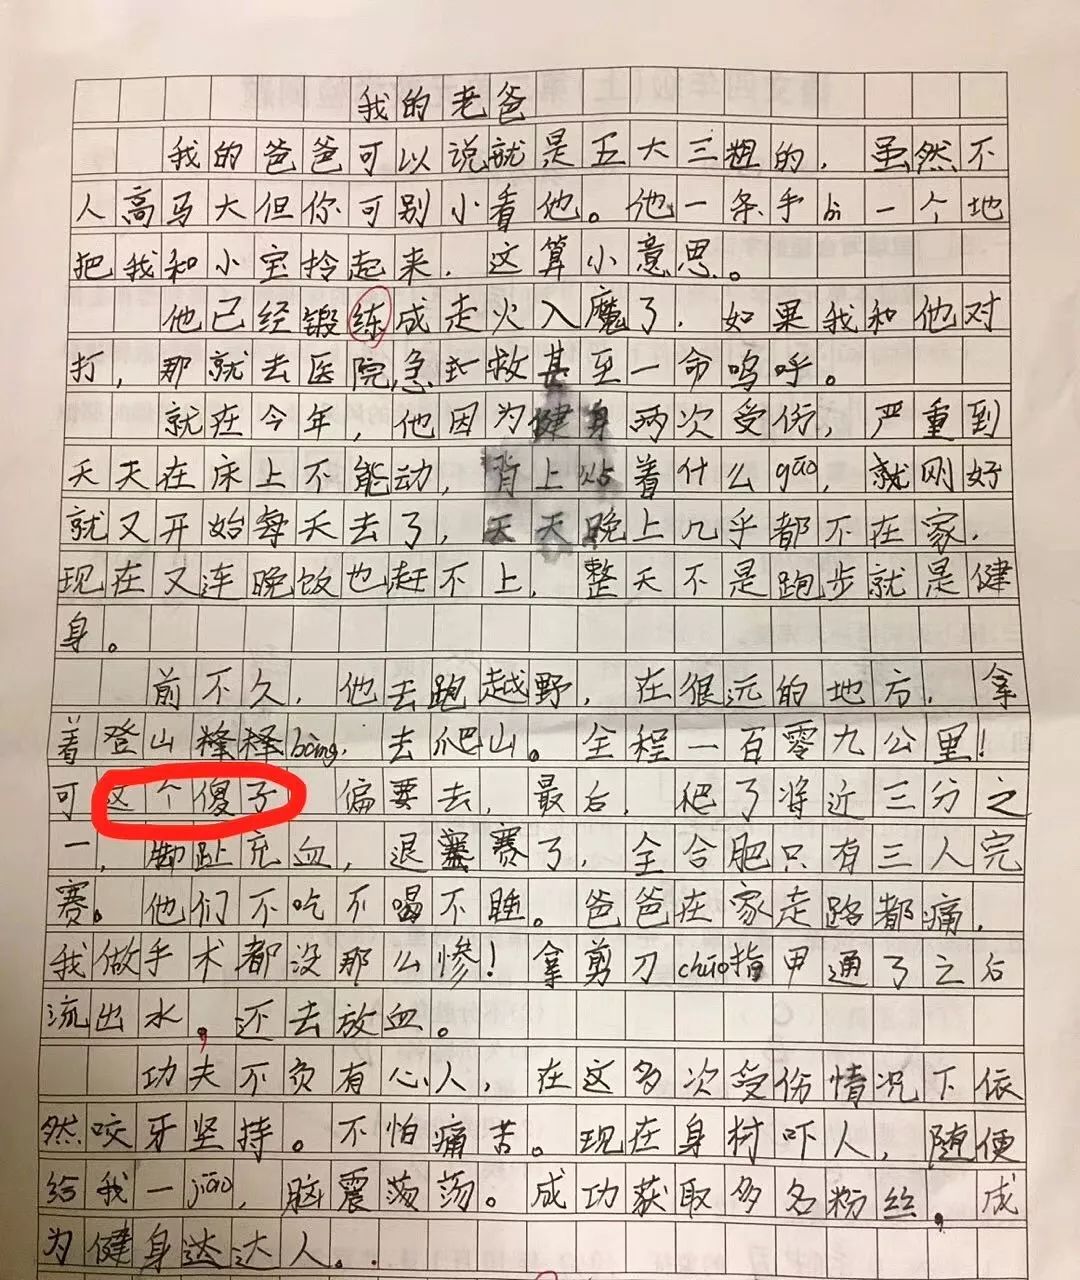 我的老爸
我的爸爸可以说就是五大三粗的，虽然不
人高马大但你可别小看他。他一条手bì一个地
把我和小宝拎起来，这算小意思。
他已经锻练成走火入魔了，如果我和他对
打，那就去医院急救甚至一命呜呼。
就在今年，他因为健身两次受伤，严重到
天天在床上不能动，背上贴着什么gāo，就刚好
就又开始每天去了，天天晚上几乎都不在家，
现在又连晚饭也赶不上，整天不是跑步就是健
身。
前不久，他去跑越野，在很远的地方，拿
着登山bàng，去爬山。全程一百零九公里！
可这个傻子偏要去，最后，爬了将近三分之
一，脚趾充血，退赛了，全合肥只有三人完
赛。他们不吃不喝不睡。爸爸在家走路都痛，
我做手术都没那么惨！拿剪刀chuō指甲通了之后
流出水，还去放血。
功夫不负有心人，在这多次受伤情况下依
然咬牙坚持。不怕痛苦。现在身材吓人，随便
给我一jiǎo，脑震荡荡。成功获取多名粉丝，成
为健身达达人。